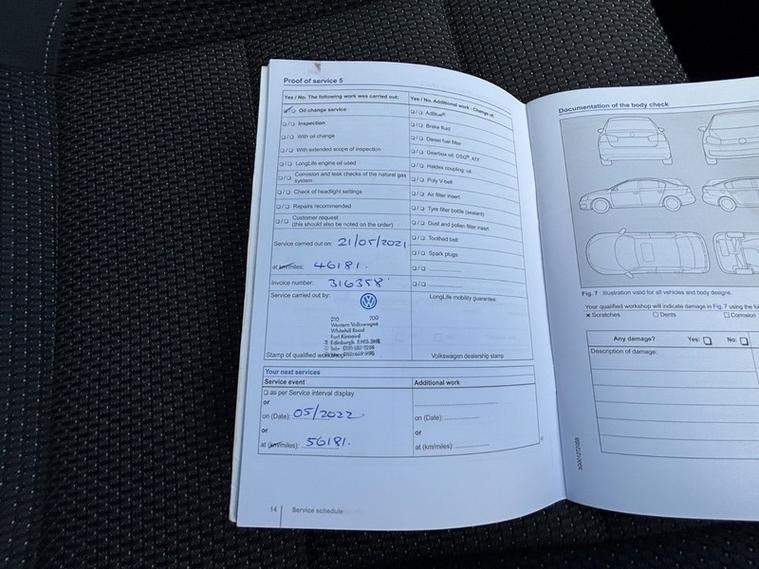 Proof of service 5
Yes / No. The following work was carried out:
Yes / No. Additional work - Change of:
Oil change service
Inspection
With oil change
With extended scope of inspection
LongLife engine oil used
Corrosion and leak checks of the natural gas
system
Check of headlight settings
Repairs recommended
Customer request
(this should also be noted on the order)
AdBlue®
Brake fluid
Diesel fuel filter
Gearbox oil: DSG®, ATF
Haldex coupling: oil
Poly V-belt
Air filter insert
Tyre filler bottle (sealant)
Dust and pollen filter insert
Toothed belt
Spark plugs
Service carried out on: 21/05/2021
at km/miles: 46181.
Invoice number: 316358
Service carried out by:
LongLife mobility guarantee:
Western Volkswagen
Whitehill Road
Fort Kinnaird
Edinburgh
Stamp of qualified workshop
Volkswagen dealership stamp
Your next services
Service event
Additional work
as per Service interval display
or
on (Date): 05/2022
or
at (km/miles): 56181.
on (Date):
or
at (km/miles):
14 Service schedule
Documentation of the body check
Fig. 7 Illustration valid for all vehicles and body designs.
Your qualified workshop will indicate damage in Fig. 7 using the
× Scratches □ Dents □ Corrosion
Any damage? Yes: □ No: □
Description of damage: